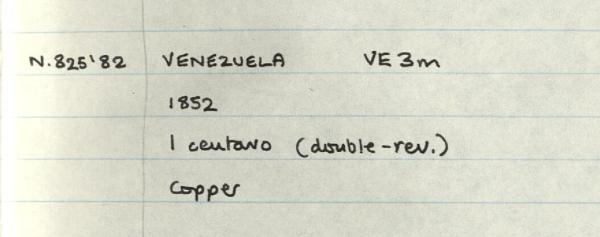 N.825'82 VENEZUELA VE 3m
1852
1 centavo (double-rev.)
Copper